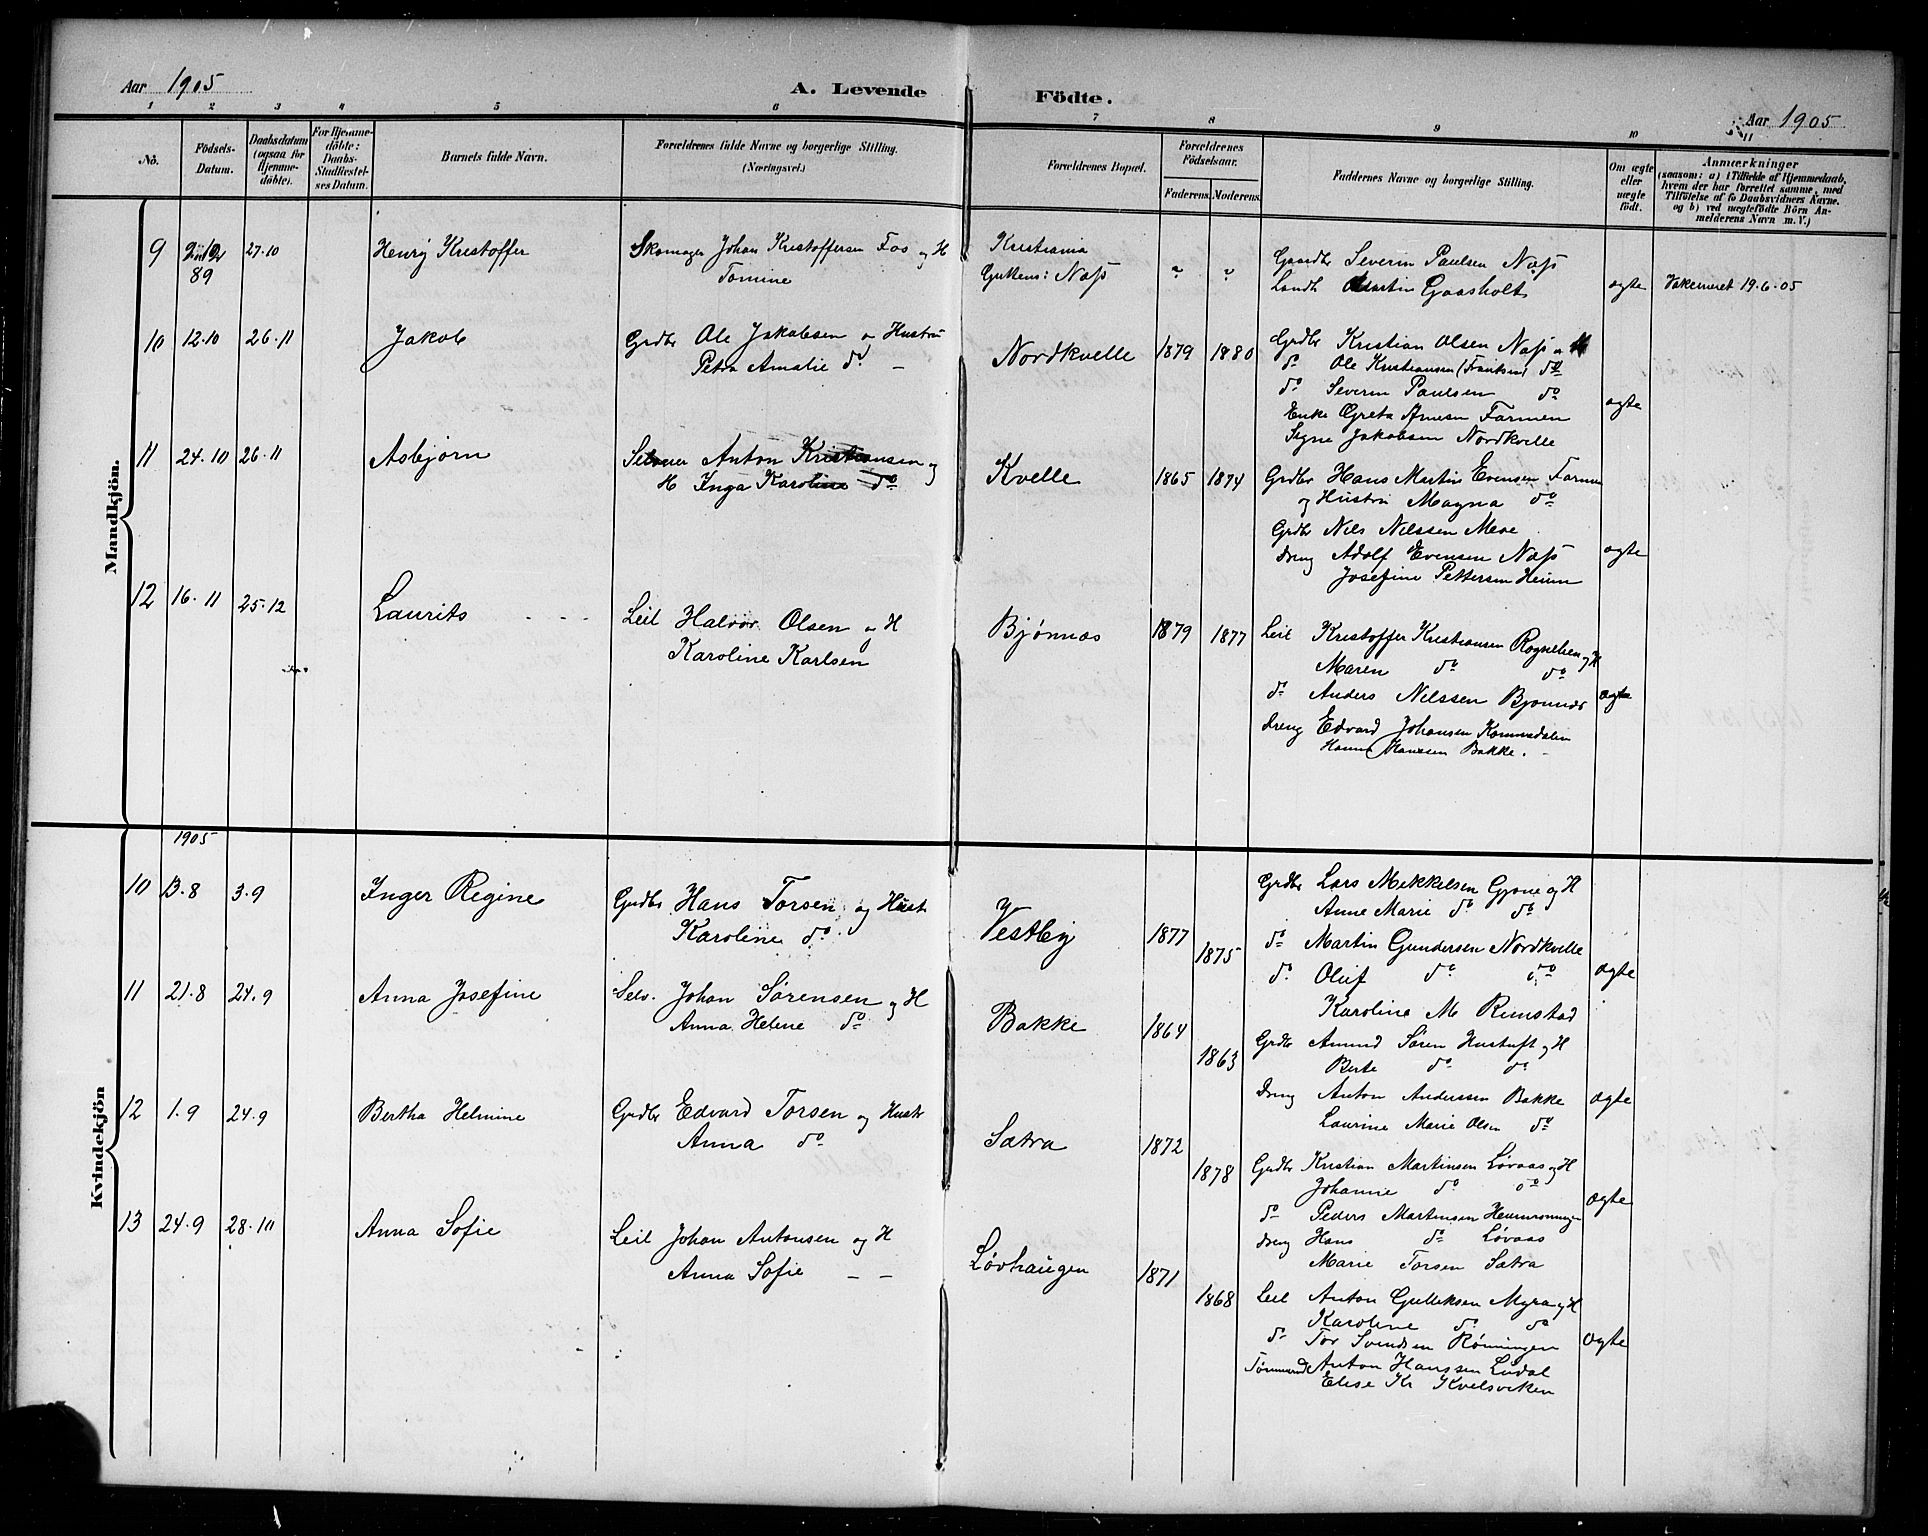 Aar 1905
A. Levende
Födte.
Aar 1905
1 2 3 4 5 6 7 8 9 10 11
No.
Födsels-
Datum.
Daabsdatum
(ogsaa for
Hjemme-
döbte).
For Hjemme-
döbte:
Daabs-
Stadfæstel-
ses Datum.
Barnets fulde Navn.
Forældrenes fulde Navne og borgerlige Stilling.
(Næringsvei.)
Forældrenes Bopæl.
Forældrenes
Födselsaar.
Faderens. Moderens.
Faddernes Navne og borgerlige Stilling.
Om ægte
eller
uægte
födt.
Anmærkninger
(saasom: a) i Tilfælde af Hjemmedaab,
hvem der har forrettet samme, med
Tilföielse af to Daabsvidners Navne,
og b) ved uægtefödte Börn An-
melderens Navn m. V.)
Mandkjön.
9
89
27-10
Henry Kristoffer
Skomager Johan Kristoffersen Fos og H
Tomine
Kristiania
Guttens: Næss
Gaardbr Severin Paulsen Næss
Landh Martin Gaasholt
ægte
Vakcineret 19-6-05
10
12-10
26-11
Jakob
Grdbr Ole Jakobsen og Hustru
Petra Amalie do -
Nordkvelle
1879
1880
Grdbr Kristian Olsen Næss
do Ole Kristiansen (Frantsen) do
do Severin Paulsen do
Enke Greta Farmen
Signe Jakobsen Nordkvelle
ægte
11
24-10
26-11
Asbjørn
Anton Kristiansen og
H Inga Karoline do
Kvelle
1865
1874
Grdbr Hans Martin Evensen Farmen
og Hustru Magna do
Grdbr Nils Nilssen
dreng Adolf Evensen Næss
Josefine Pettersen
ægte
12
16-11
25-12
Laurits
Leil Halvor Olsen og H
Karoline Karlsen
Bjønnæs
1879
1877
Leil Kristoffer Kristiansen Rognelien og H
Maren do do
do Anders Nilssen Bjønnæs
dreng Edvard Johansen
Hanna Hanssen Bakke. -
ægte
Kvindekjön
1905
10
13-8
3-9
Inger Regine
Grdbr Hans Torsen og Hust
Karoline do
Vestby
1877
1875
Grdbr Lars Mikkelsen Gjone og H
Anne Marie do do
do Martin Gundersen Nordkvelle
do Oluf do do
Karoline M Rimstad
ægte
11
21-8
24-9
Anna Josefine
Selv. Johan Sørensen og H
Anna Helene do
Bakke
1864
1863
Grdbr Amund Søren og H
Berte do do
dreng Anton Anderssen Bakke
Laurine Marie Olsen do
ægte
12
1-9
24-9
Bertha Helmine
Grdbr Edvard Torsen og Hustr
Anna do
Sætra
1872
1878
Grdbr Kristian Martinsen Løvaas og H
Johanne do do
do Peders Martinsen
dreng Hans do Løvaas
Marie Torsen Sætra
ægte
13
24-9
28-10
Anna Sofie
Leil Johan Antonsen og H
Anna Sofie - -
Løvhaugen
1871
1868
Leil Anton Gulliksen Myra og H
Karoline do do
do Tor Svendsen Rønningen
Tømmermd Anton Hanssen
Elise Kr Kvelsviken
ægte